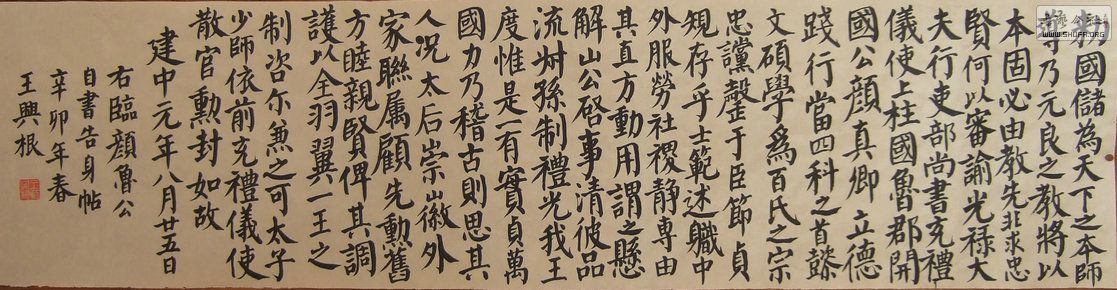 勑國儲為天下之本師
導乃元良之教將以
本固必由教先非求忠
賢何以審諭光禄大
夫行吏部尚書充禮
儀使上柱國魯郡開
國公顏真卿立德
踐行當四科之首懿
文碩學爲百氏之宗
忠讜罄于臣節貞
規存乎士範述職中
外服勞社稷静專由
其直方動用謂之懸
解山公啓事清彼品
流叔孫制禮光我王
度惟是一有實貞萬
國力乃稽古則思其
人况太后崇徽外
家聯属顧先勳舊
方睦親賢俾其調
護以全羽翼一王之
制咨尔兼之可太子
少師依前充禮儀使
散官勳封如故
建中元年八月廿五日
右臨顏魯公
自書告身帖
辛卯年春
王興根
WWW.SHUFA.ORG